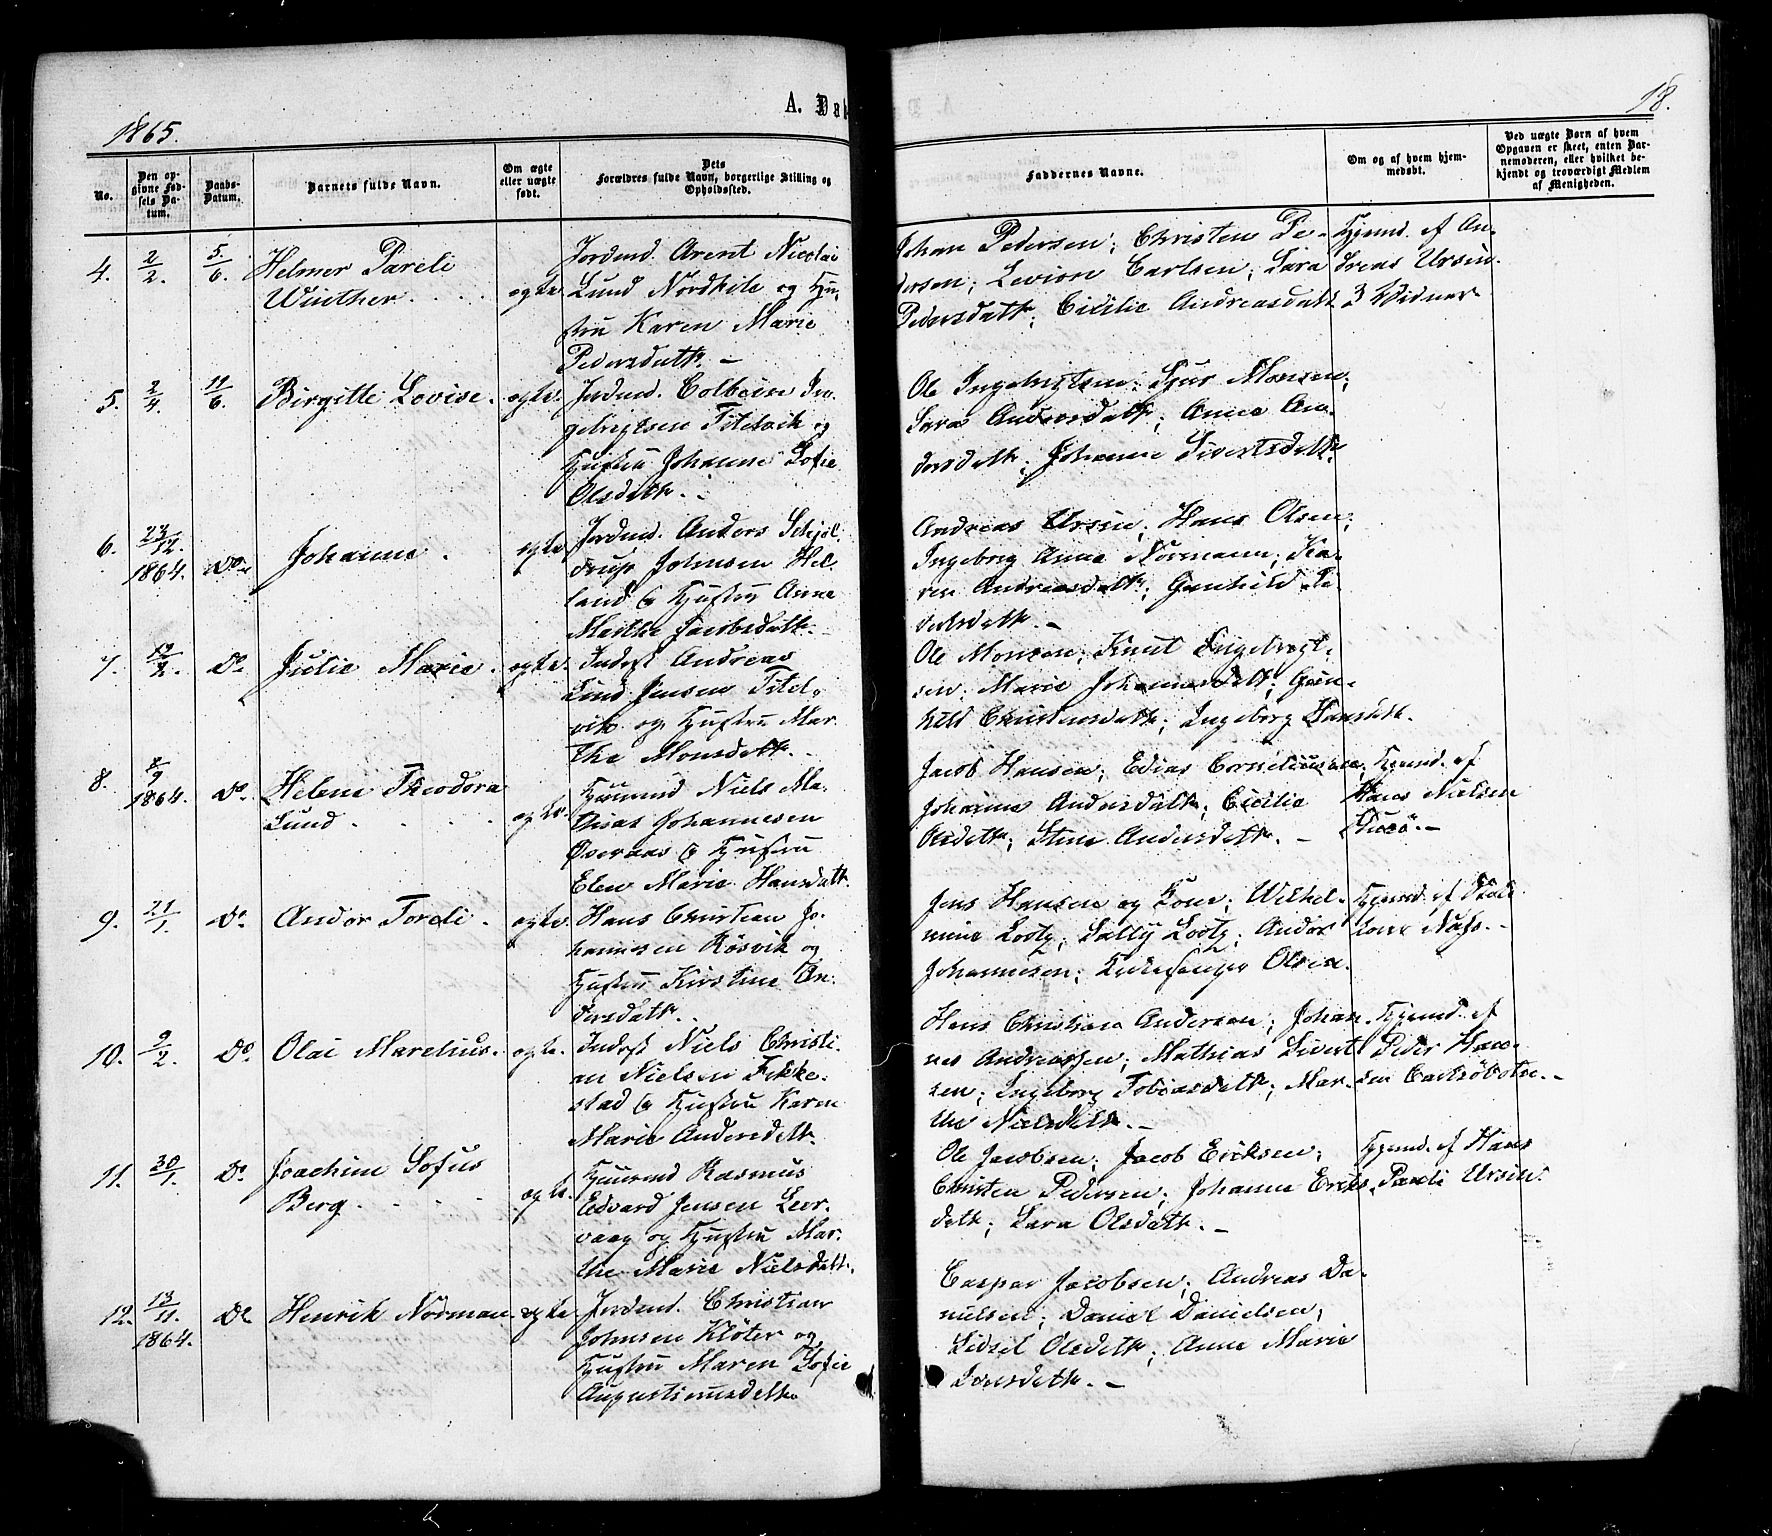 1865.
A. Døb
18.
No.
Den op-
givne Fød-
sels Da-
tum.
Daabs-
Datum.
Barnets fulde Navn.
Om ægte
eller uægte
født.
Dets
Forældres fulde Navn, borgerlige Stilling og
Opholdssted.
Faddernes Navne.
Om og af hvem hjem-
medøbt.
Ved uægte Børn af hvem
Opgaven er skeet, enten Bar-
nemoderen, eller hvilket be-
kjendt og troværdigt Medlem
af Menigheden.
4.
2/2.
5./6.
Helmer Pareli
Winther.
ægte.
Jordmd. Arent Nicolai
Lund Nordkile og Hu-
stru Karen Marie
Pedersdatr. –
Johan Pedersen; Christen Pe-
dersen; Levion Carlsen; Sara
Pedersdatr; Cicilie Andreasdatr
Hjemd. af An-
dreas Ursin.
3 Vidner
5.
2/4.
11/6.
Birgitte Lovise.
ægte.
Jordmd. Colbein In-
gebrigtsen Titelvik og
Hustru Johanne Sofie
Olsdatr.
Ole Ingebrigtsen; Sjur Monsen;
Saras Andersdatr; Anne An-
dersdatr; Johanne Sivertsdatr.
6.
23/12.
1864.
Do
Johanna.
ægte
Jordmd. Anders Schjel-
drup Johnsen Hel-
land og Hustru Anne
Marthe Jacobsdatr.
Andreas Ursin; Hans Olsen;
Ingeborg Anna Normann; Ka-
ren Andreasdatr; Gunhild Pe-
dersdatr. –
7.
12/2.
Do.
Julie Marie.
ægte.
Inderst Andreas
Lind Jensen Titel-
vik og Hustru Mar-
tha Monsdatr.
Ole Monsen; Knut Ingebrigt-
sen; Marie Johannesdatr; Gun-
hild Christensdatr; Ingeborg Hansdtr.
8.
8/9
1864.
Do.
Helena Theodora
Lund
ægte.
Huusmd Niels Ma-
thias Johannesen
Øveraas og Hustru
Elen Marie Hansdatr.
Jacob Hansen; Edias Corneliussen;
Johanna Andersdatr; Cicilie
Olsdatr; Stine Andersdatr. –
Hjemd. af
Hans Nielsen
9.
21/1.
Do.
Andor Toreli.
ægte.
Hans Christian Jo-
hannesen Røsvik og
Hustru Kirstine An-
dersdatr.
Jens Hansen og Kone; Wilhel-
mine Lootz; Sally Lootz; Andor
Johannesen; Kirkesanger Olsen.
Hjemd. af
kone Næss. –
10.
9/2.
Do.
Olai Marelius.
ægte.
Inderst Niels Christi-
an Nielsen Fikke-
stad og Hustru Karen
Marie Andersdatr.
Hans Christian Andersen; Johan-
nes Andreassen; Mathias Sivert-
sen; Ingeborg Tobiasdatr; Mar-
the Nielsdatr. –
Hjemd. af
Peder Han-
sen
11.
30/1.
Do
Joachim Sofus
Berg.
ægte.
Huusmd Rasmus
Edvard Jensen Leer-
vaag og Hustru Mar-
the Marie Nielsdatr.
Ole Jacobsen; Jacob Eriksen;
Christen Pedersen; Johanna Eriks-
datr; Sara Olsdatr. –
Hjemd. af Hans
Pareli Ursin.
12.
13/11.
1864.
Do
Henrik Norman.
ægte
Jordmd. Christian
Johnsen Kløter og
Hustru Maren Sofie
Augustinusdatr
Caspar Jacobsen; Andreas Da-
nielsen; Daniel Danielsen;
Sidsel Olsdatr; Anne Marie
Larsdatr. –